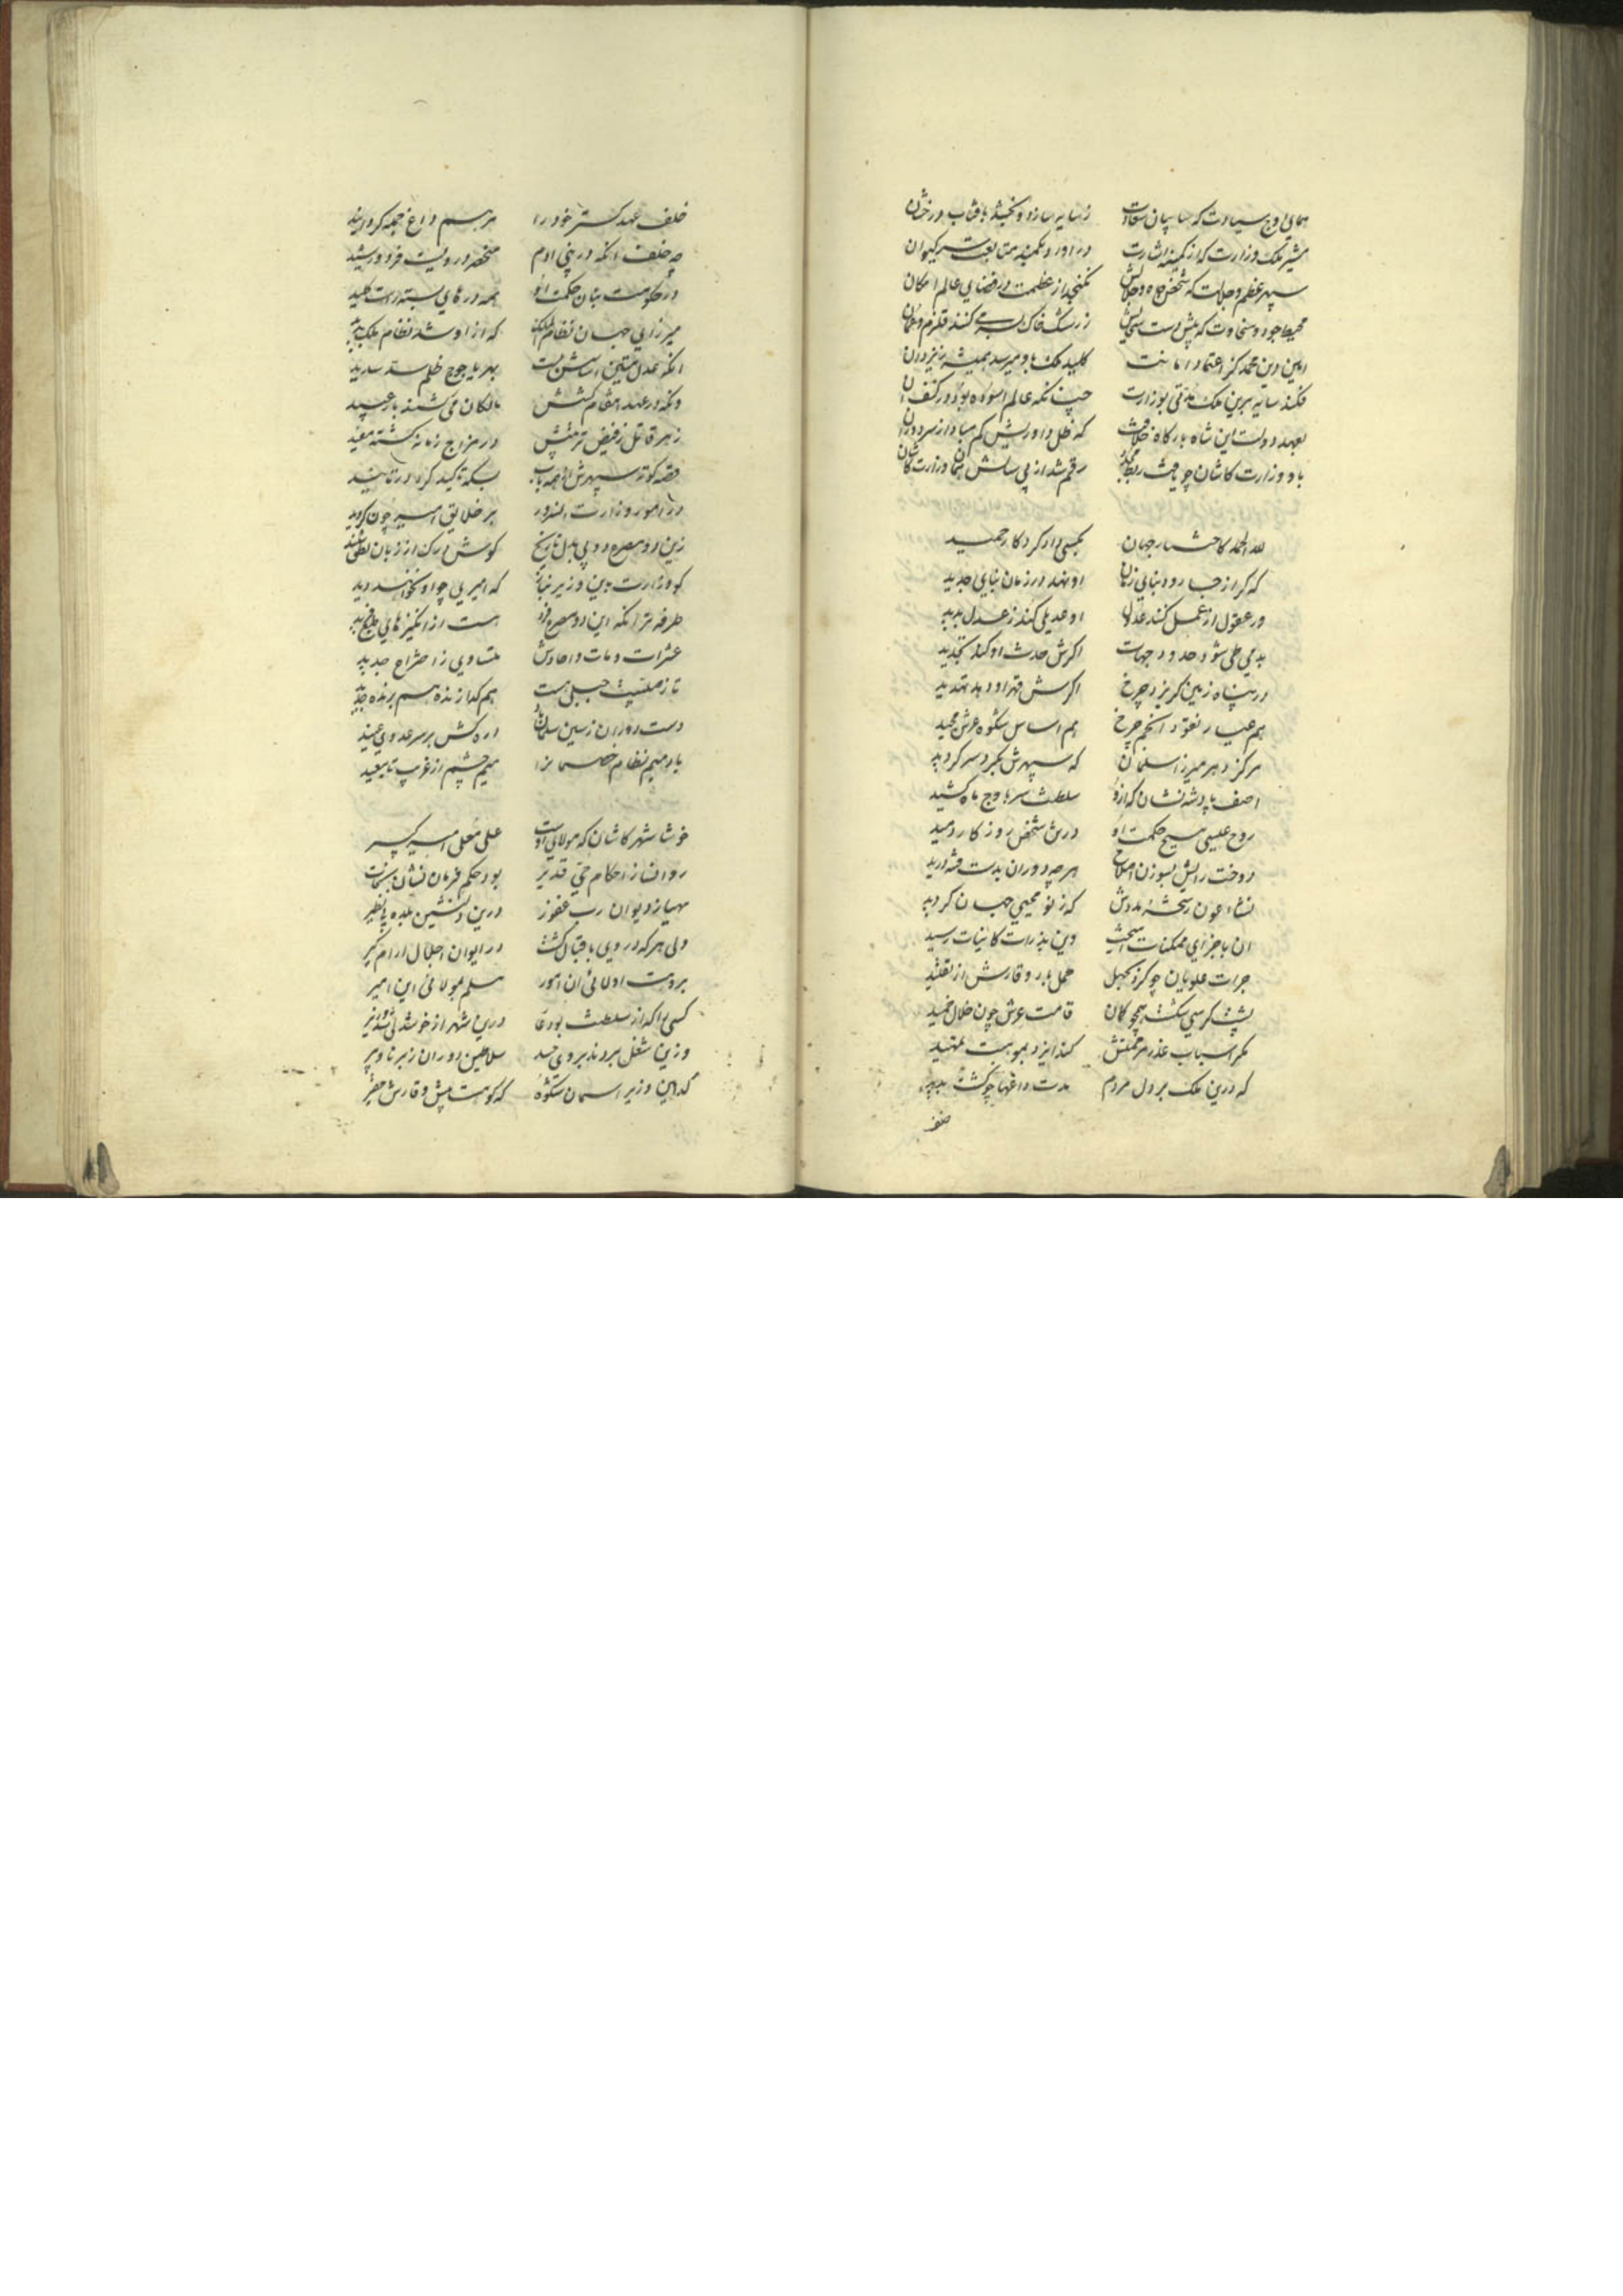 همای اوج سیادت که سایبان سعادت زسایه سازد و بخشد بافتاب درخشان
مشیر ملک وزارت که از کمینه اشارت دراورد بکمینه متابعت سر کیوان
سپهر عظم و جلالت که شخص جاه و جلالش نکنجد از عظمت در فضای عالم امکان
محیط جود و سخاوت که پیش دست سخایش ز رشک خاک بسر می کنند قلزم و عمان
امین دین محمد کز اعتماد امانت کلید ملک باو میرسد همیشه ز یزدان
فکند سایه برین ملک مدتی بوزارت چنانکه عالم اسوده بود در کنف ان
بعهد دولت این شاه بارکاه خلافت که ظل داوریش کم مباد از سر دوران
باو وزارت کاشان چو یافت ربط مجدد رقم شد از پی سالش همان وزارت کاشان
لله الحمد کافتخار جهان بکسی داد کردکار حمید
که کر از جا رود بنای زمان او نهد در زمان بنای جدید
ور عقول از عمل کنند عدول او عدیلی کند ز عدل پدید
بدمی طی شود حدود جهات اکرش حدث او کند تحدید
در پناه زمین کریزد چرخ اکرش قهر او دهد تهدید
هم عیار نقود انجم چرخ هم اساس شکوه عرش مجید
مرکز دهر میرزا سلمان که سپهرش بکرد سر کردید
اصف پادشه نشان که ازو سلطنت سر باوج ماه کشید
روح عیسی مسیح حکمت او در تن شخص روزکار دمید
دوخت رایش بسوزن اصلاح هرچه دوران بدست فتنه درید
نشاء عون رشحهٔ مددش که ز نو محیی جهان کردید
ان باجزای ممکنات امیخت وین بذرات کاینات رسید
جرات علویان چو کرد بجهل حمل بار وقارش از تقلید
پشت کرسی شکست همچو کمان قامت عرش چون هلال خمید
مکر اسباب عذر مرحمتش کند ایزد بموهبت تمهید
که درین ملک بر دل مردم مدت داغها چو کشت مدید
خلف
خلف عهد کستر خود را مرهم داغ جمله کردانید
چه خلف انکه در بنی ادم منحصر در ویست فرد و رشید
در حکومت بنان حکمت او همه درهای بسته راست کلید
میرزای جهان نظام الملک که ازو شد نظام ملک پدید
انکه عدل متین اساسش بست بهر یاجوج ظلم سد سدید
وانکه در عهد انتقام کشش مالکان می کشند بار عبید
زهر قاتل ز فیض تربیتش در مزاج زمانه کشته مفید
قصه کوته سپهرش از همه باب بسکه تاکید کرد در تایید
در امور وزارت اندر دور بر خلایق امیر چون کردید
زین دو مصرع دو پی بدل تاریخ کوش درک از زبان نطق شنید
کو وزارت بدین وزیر بناز که امیری چو او نخواهند دید
طرفه تر انکه این دو مصرع فرد هست از انکیزهای طبع پدید
عشرات و مات و احادش متساوی ز اختراع جدید
تا ز صلبیت جبلی هست هم کدازنده هم برنده حدید
دست دوران ز سین سلمان باد اره کش بر سر عدوی عنید
باد میم نظام خصمانرا میم چشم از غرب تا بعید
خوشا شهر کاشان که مولای اوست علی معلی امیر کبیر
روانساز احکام حی قدیر بود حکم فرمان نشان بخت
مهیاز دیوان رب غفور درین دلنشین بلده بی نظیر
ولی هر که در وی باقبال کشت در ایوان اجلال ارام کیر
بر دست اولای ان امور مسلم بمولای این امیر
کسی را که از سلطنت بود عار درین شهر از خوشدلی شد وزیر
وزین شغل بردند بر وی حسد سلاطین دوران ز برنا و پیر
کدامین وزیر اسمان شکوه که کوهست پیش وقارش حقیر